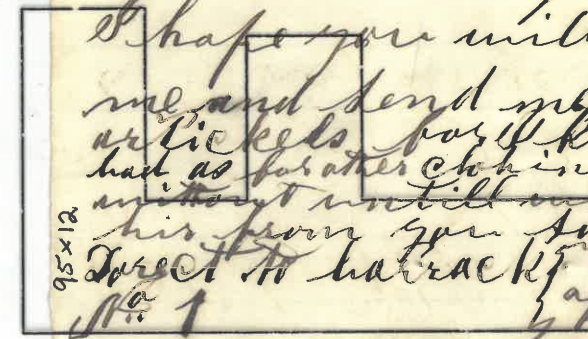 I hope you will
me and send me
artickels for
had as for other clothin
without untill
his from you
Dorect to barrack
No. 1
95x12